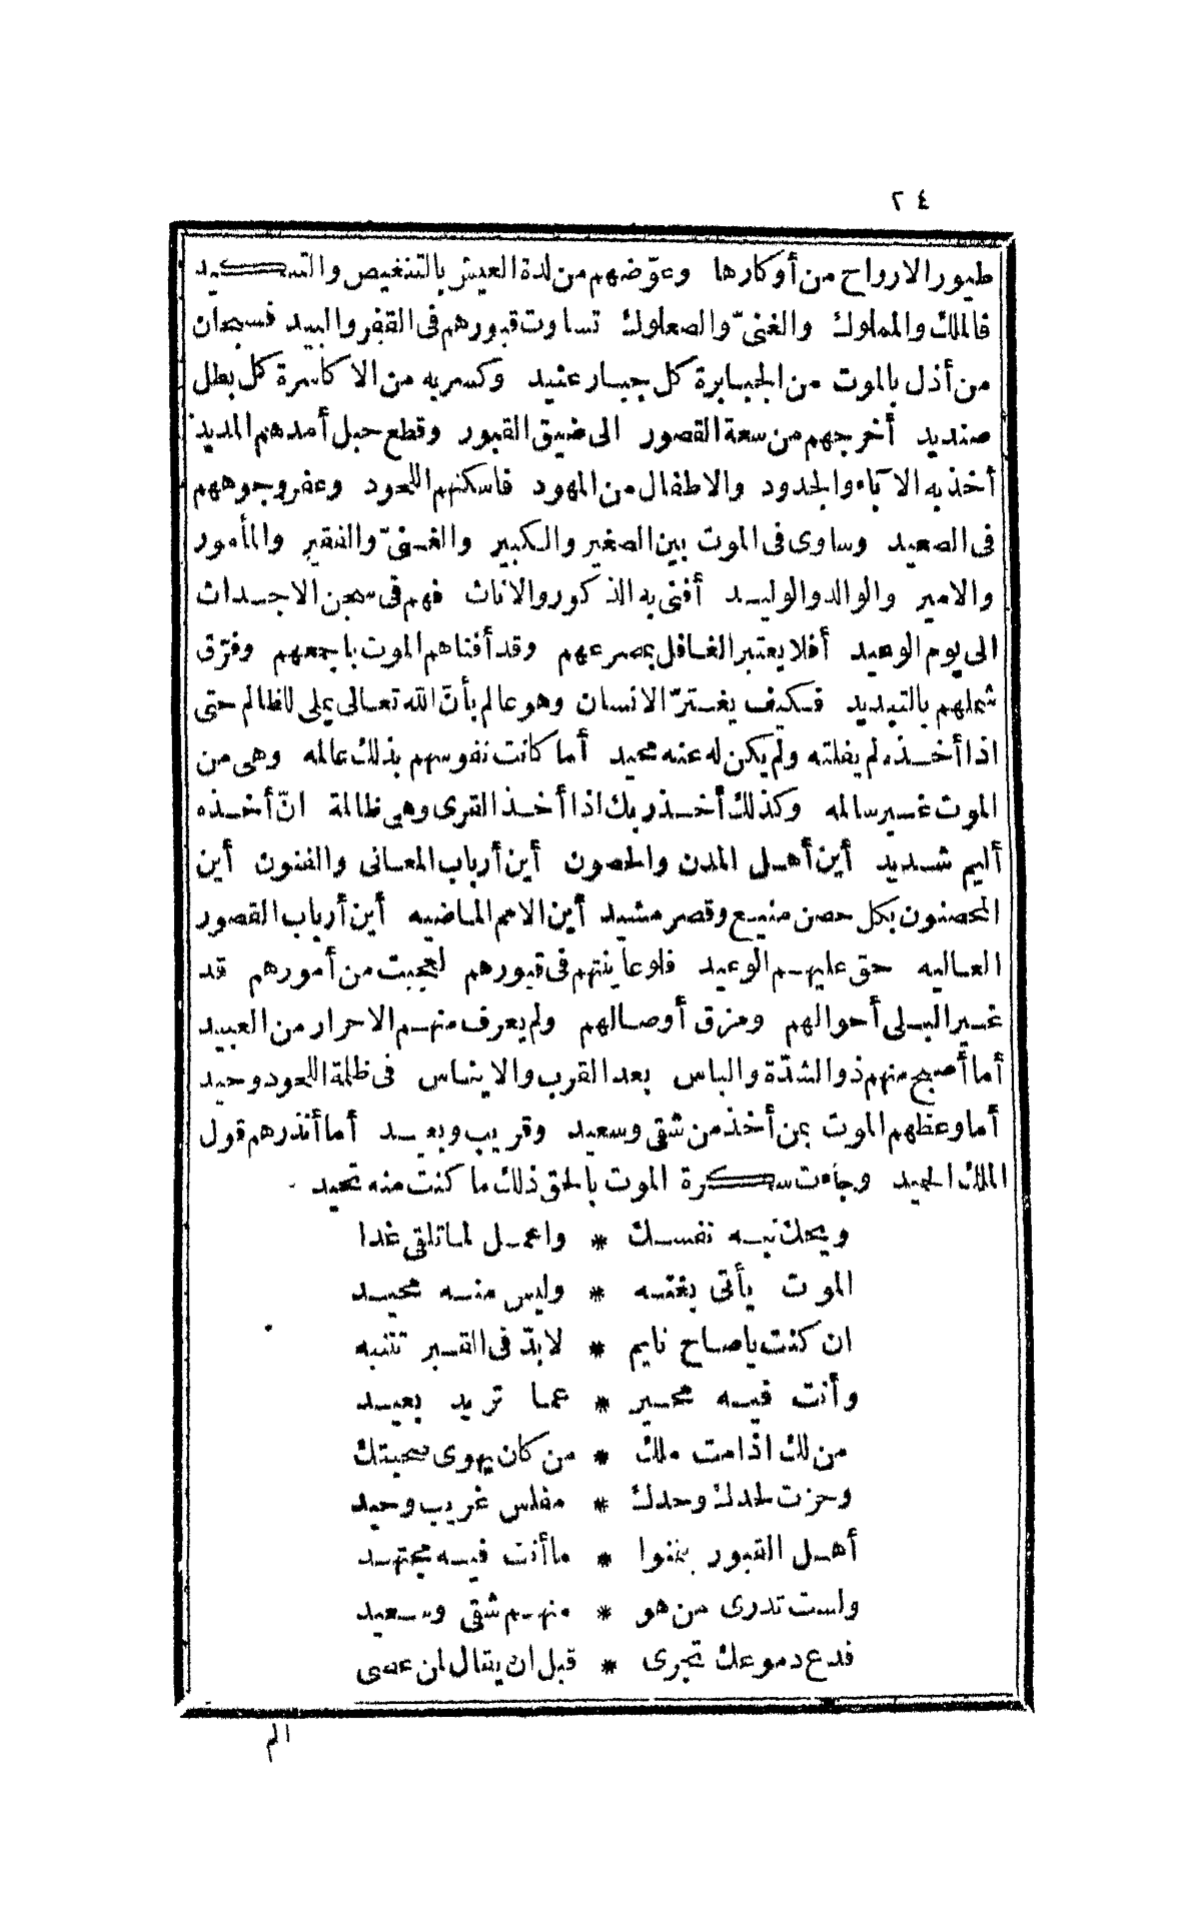 ٢٤
طيور الارواح من أوكارها وعوّضهم من لذة العيش بالتنغيص والتنكيد
فالملك والمملوك والغنىّ والصعلوك تساوت قبورهم فى القفر والبيد فسبحان
من أذل بالموت من الجبابرة كل جبار عنيد وكسر به من الاكاسرة كل بطل
صنديد أخرجهم من سعة القصور الى ضيق القبور وقطع حبل أمدهم المديد
أخذ به الآباء والجدود والاطفال من المهود فاسكنهم اللحود وعفر وجوههم
فى الصعيد وساوى فى الموت بين الصغير والكبير والغنىّ والفقير والمأمور
والامير والوالد والوليد أفنى به الذكور والاناث فهم فى سجن الاجداث
الى يوم الوعيد أفلا يعتبر الغافل بمصرعهم وقد أفناهم الموت باجمعهم وفرّق
شملهم بالتبديد فكيف يغترّ الانسان وهو عالم بأنّ الله تعالى يملى للظالم حتى
اذا أخذه لم يفلته ولم يكن له عنه محيد أما كانت نفوسهم بذلك عالمه وهى من
الموت غير سالمه وكذلك أخذ ربك اذا أخذ القرى وهى ظالمة انّ أخذه
أليم شديد أين أهل المدن والحصون أين أرباب المعانى والفنون أين
المحصنون بكل حصن منيع وقصر مشيد أين الامم الماضيه أين أرباب القصور
العاليه حق عليهم الوعيد فلو عاينتهم فى قبورهم لعجبت من أمورهم قد
غير البلى أحوالهم ومزق أوصالهم ولم يعرف منهم الاحرار من العبيد
أما أصبح منهم ذو الشدّة والباس بعد القرب والايناس فى ظلمة اللحود وحيد
أما وعظهم الموت بمن أخذ من شقى وسعيد وقريب وبعيد أما أنذرهم قول
الملك الحميد وجاءت سكرة الموت بالحق ذلك ما كنت منه تحيد
ويحك نبه نفسك * واعمل لما تلقى غدا
الموت يأتى بغته * وليس منه محيد
ان كنت يا صاح نايم * لابدّ فى القبر تنتبه
وأنت فيه محير * عما تريد بعيد
من لك اذا مت ملك * من كان يهوى صحبتك
وحزت لحدك وحدك * مفلس غريب وحيد
أهل القبور يتمنوا * ما أنت فيه مجتهد
ولست تدرى من هو * منهم شقى وسعيد
فدع دموعك تجرى * قبل ان يقال لمن عصى
الم